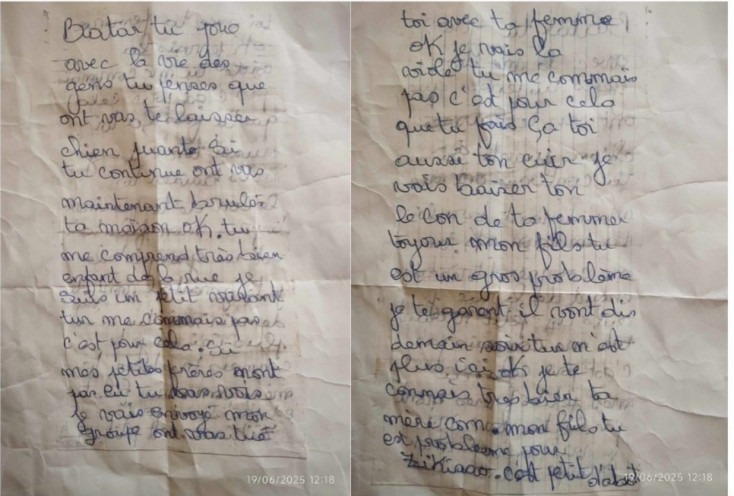 Batar tu joue
avec la vie des
gens tu penses que
ont vas te laisser
chien juante Si
tu continue ont vas
maintenant brulér
ta maison OK. tu
me comprend très bien
enfant de la rue je
suis un petit
tu me connais pas
c'est pour cela. Si
mes petites frères mont
pas eu tu vas vois
je vais envoyé mon
groupe ont vas tué
19/06/2025 12:18
toi avec ta femme
OK je vais la
violet tu me connais
pas c'est pour cela
que tu fais Ça toi
aussi ton cuir je
vais baiser ton
le con de ta femme
toujour mon fils tu
est un gros probleme
je te garant il vont dis
demain tu n'est
plus OK je te
connais très bien ta
mere com. mon fils tu
est probleme pour
c'est petit d'abit
19/06/2025 12:18